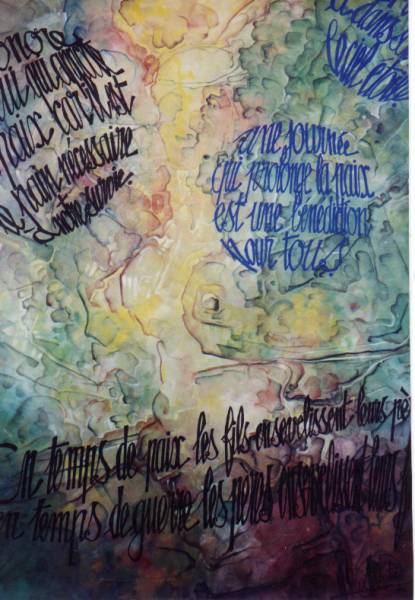 onore
paix car il est
le pain nécessaire
notre survie.
dans
le ciel
une journée
qui prolonge la paix
est une bénédiction
pour tous
En temps de paix les fils ensevelissent leurs pè
en temps de guerre les pères ensevelissent leurs